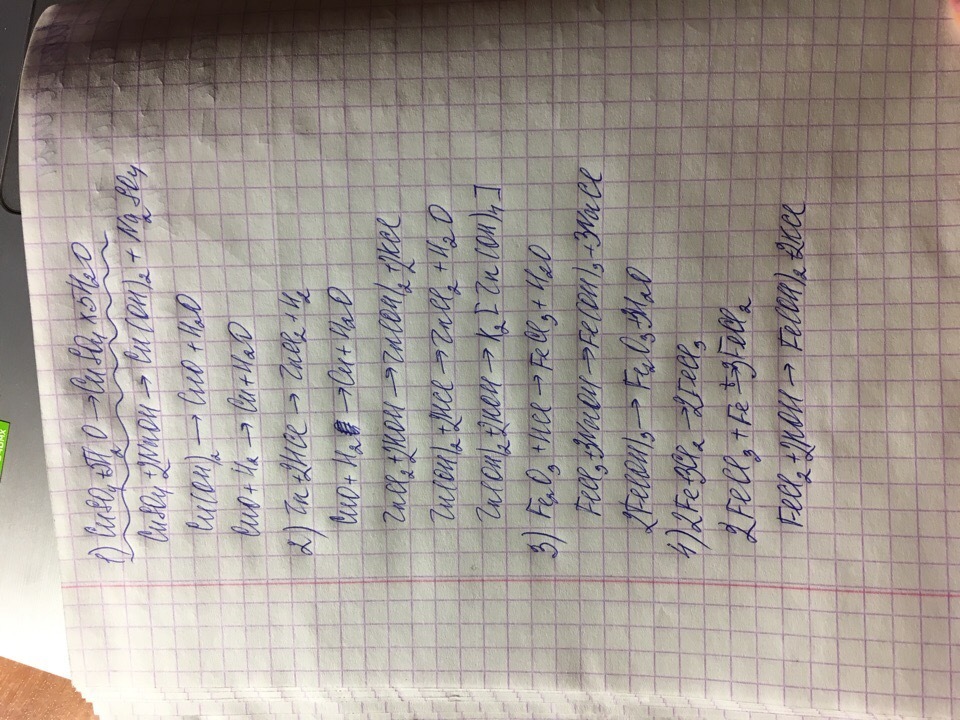 1) CuSO4 + 5H2O → CuSO4 x 5H2O
CuSO4 + 2NaOH → Cu(OH)2 + Na2SO4
Cu(OH)2 → CuO + H2O
CuO + H2 → Cu + H2O
2) Zn + 2HCl → ZnCl2 + H2
CuO + H2 → Cu + H2O
ZnCl2 + 2KOH → Zn(OH)2 + 2KCl
Zn(OH)2 + 2HCl → ZnCl2 + H2O
Zn(OH)2 + 2KOH → K2[Zn(OH)4]
3) Fe2O3 + HCl → FeCl3 + H2O
FeCl3 + 3NaOH → Fe(OH)3 + 3NaCl
2Fe(OH)3 → Fe2O3 + 3H2O
4) 2Fe + 3Cl2 → 2FeCl3
2FeCl3 + Fe →t 3FeCl2
FeCl2 + 2KOH → Fe(OH)2 + 2KCl